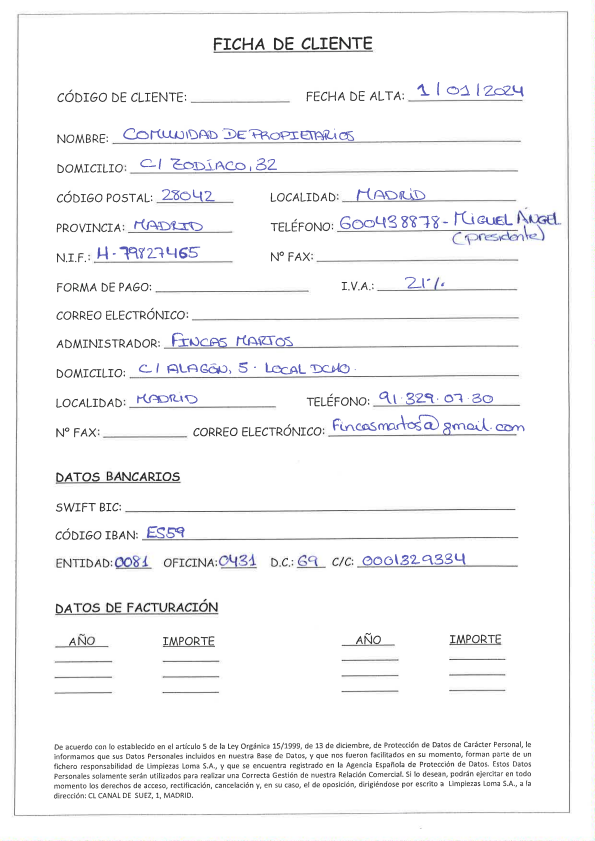 FICHA DE CLIENTE
CÓDIGO DE CLIENTE: FECHA DE ALTA: 1/01/2024
NOMBRE: COMUNIDAD DE PROPIETARIOS
DOMICILIO: C/ ZODÍACO, 32
CÓDIGO POSTAL: 28042 LOCALIDAD: MADRID
PROVINCIA: MADRID TELÉFONO: 600438878 - MIGUEL ÁNGEL
(presidente)
N.I.F.: H-79827465 Nº FAX:
FORMA DE PAGO: I.V.A.: 21%
CORREO ELECTRÓNICO:
ADMINISTRADOR: FINCAS MARTOS
DOMICILIO: C/ ALAGÓN, 5 - LOCAL DCHO.
LOCALIDAD: MADRID TELÉFONO: 91.329.07.30
Nº FAX: CORREO ELECTRÓNICO: fincasmartos@gmail.com
DATOS BANCARIOS
SWIFT BIC:
CÓDIGO IBAN: ES59
ENTIDAD: 0081 OFICINA: 0431 D.C.: 69 C/C: 0001329334
DATOS DE FACTURACIÓN
AÑO IMPORTE AÑO IMPORTE
De acuerdo con lo establecido en el artículo 5 de la Ley Orgánica 15/1999, de 13 de diciembre, de Protección de Datos de Carácter Personal, le
informamos que sus Datos Personales incluidos en nuestra Base de Datos, y que nos fueron facilitados en su momento, forman parte de un
fichero responsabilidad de Limpiezas Loma S.A., y que se encuentra registrado en la Agencia Española de Protección de Datos. Estos Datos
Personales solamente serán utilizados para realizar una Correcta Gestión de nuestra Relación Comercial. Si lo desean, podrán ejercitar en todo
momento los derechos de acceso, rectificación, cancelación y, en su caso, el de oposición, dirigiéndose por escrito a Limpiezas Loma S.A., a la
dirección: CL CANAL DE SUEZ, 1, MADRID.